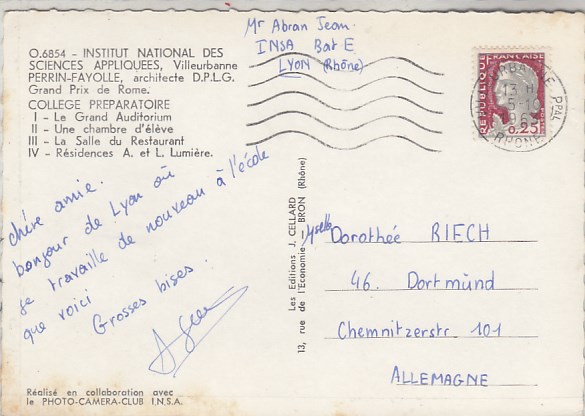 O.6854 - INSTITUT NATIONAL DES
SCIENCES APPLIQUÉES, Villeurbanne
PERRIN-FAYOLLE, architecte D.P.L.G.
Grand Prix de Rome.
COLLEGE PREPARATOIRE
I - Le Grand Auditorium
II - Une chambre d'élève
III - La Salle du Restaurant
IV - Résidences A. et L. Lumière.
Mr Abran Jean
INSA Bat E
LYON (Rhône)
REPUBLIQUE FRANÇAISE
0,25
13 H
5-10
RHONE
chère amie.
bonjour de Lyon où
je travaille de nouveau à l'école
que voici
Grosses bises.
Réalisé en collaboration avec
le PHOTO-CAMERA-CLUB I.N.S.A.
Les Editions J. CELLARD
13, rue de l'Economie - BRON (Rhône)
Melle Dorothée RIECH
46. Dortmünd
Chemnitzerstr 101
ALLEMAGNE